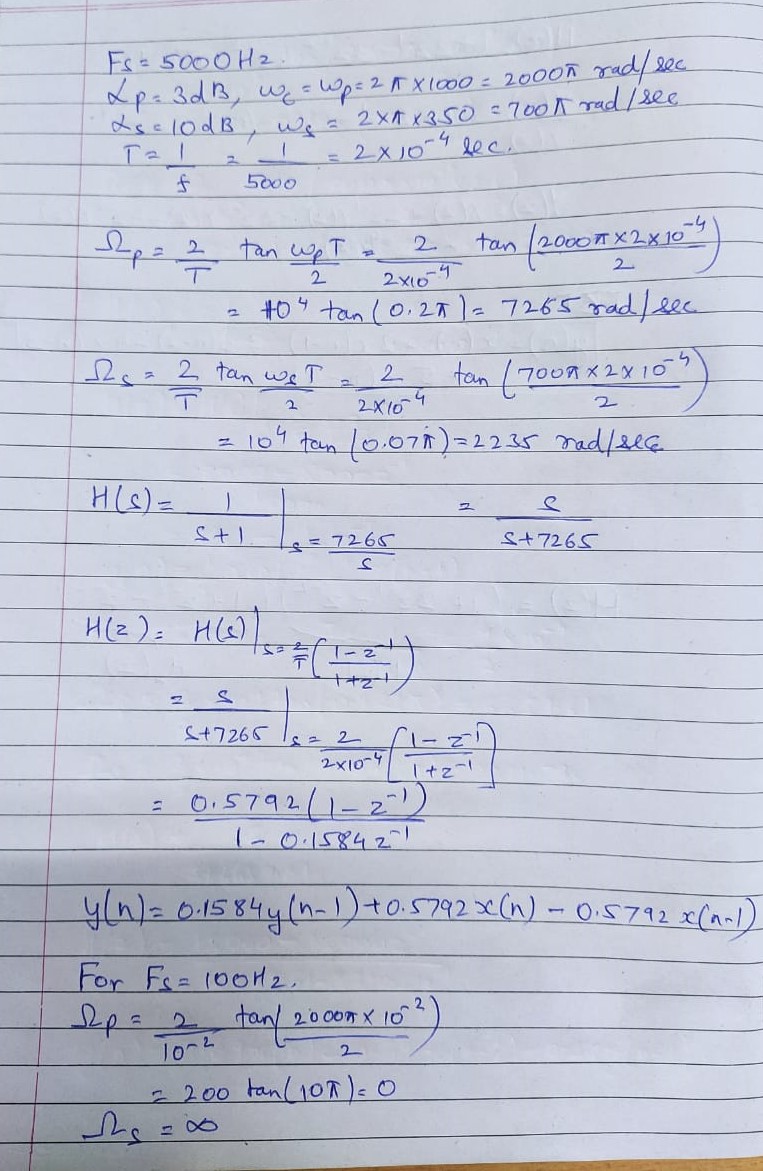 Fs = 5000 Hz.
αp = 3dB, ωc = ωp = 2π×1000 = 2000π rad/sec
αs = 10dB, ωs = 2×π×350 = 700π rad/sec
T = 1/f = 1/5000 = 2×10⁻⁴ sec.
Ωp = 2/T tan ωpT/2 = 2/(2×10⁻⁴) tan (2000π×2×10⁻⁴/2)
= 10⁴ tan(0.2π) = 7265 rad/sec
Ωs = 2/T tan ωsT/2 = 2/(2×10⁻⁴) tan (700π×2×10⁻⁴/2)
= 10⁴ tan(0.07π) = 2235 rad/sec
H(s) = 1/(s+1) |s = 7265/s = s/(s+7265)
H(z) = H(s)|s = 2/T ((1-z⁻¹)/(1+z⁻¹))
= s/(s+7265) |s = 2/(2×10⁻⁴) [(1-z⁻¹)/(1+z⁻¹)]
= 0.5792(1-z⁻¹)/(1-0.1584z⁻¹)
y(n) = 0.1584y(n-1)+0.5792x(n) - 0.5792x(n-1)
For Fs = 100Hz,
Ωp = 2/10⁻² tan(2000π×10⁻²/2)
= 200 tan(10π) = 0
Ωs = ∞